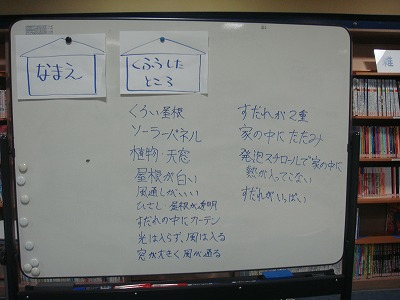 なまえ
くふうした
ところ
くろい屋根
ソーラーパネル
植物・天窓
屋根が白い
風通しがいい
ひさし 屋根が透明
すだれの中にカーテン
光は入らず、風は入る
窓が大きく風が通る
すだれが2重
家の中にたたみ
発泡スチロールで家の中に
熱が入ってこない
すだれがいっぱい